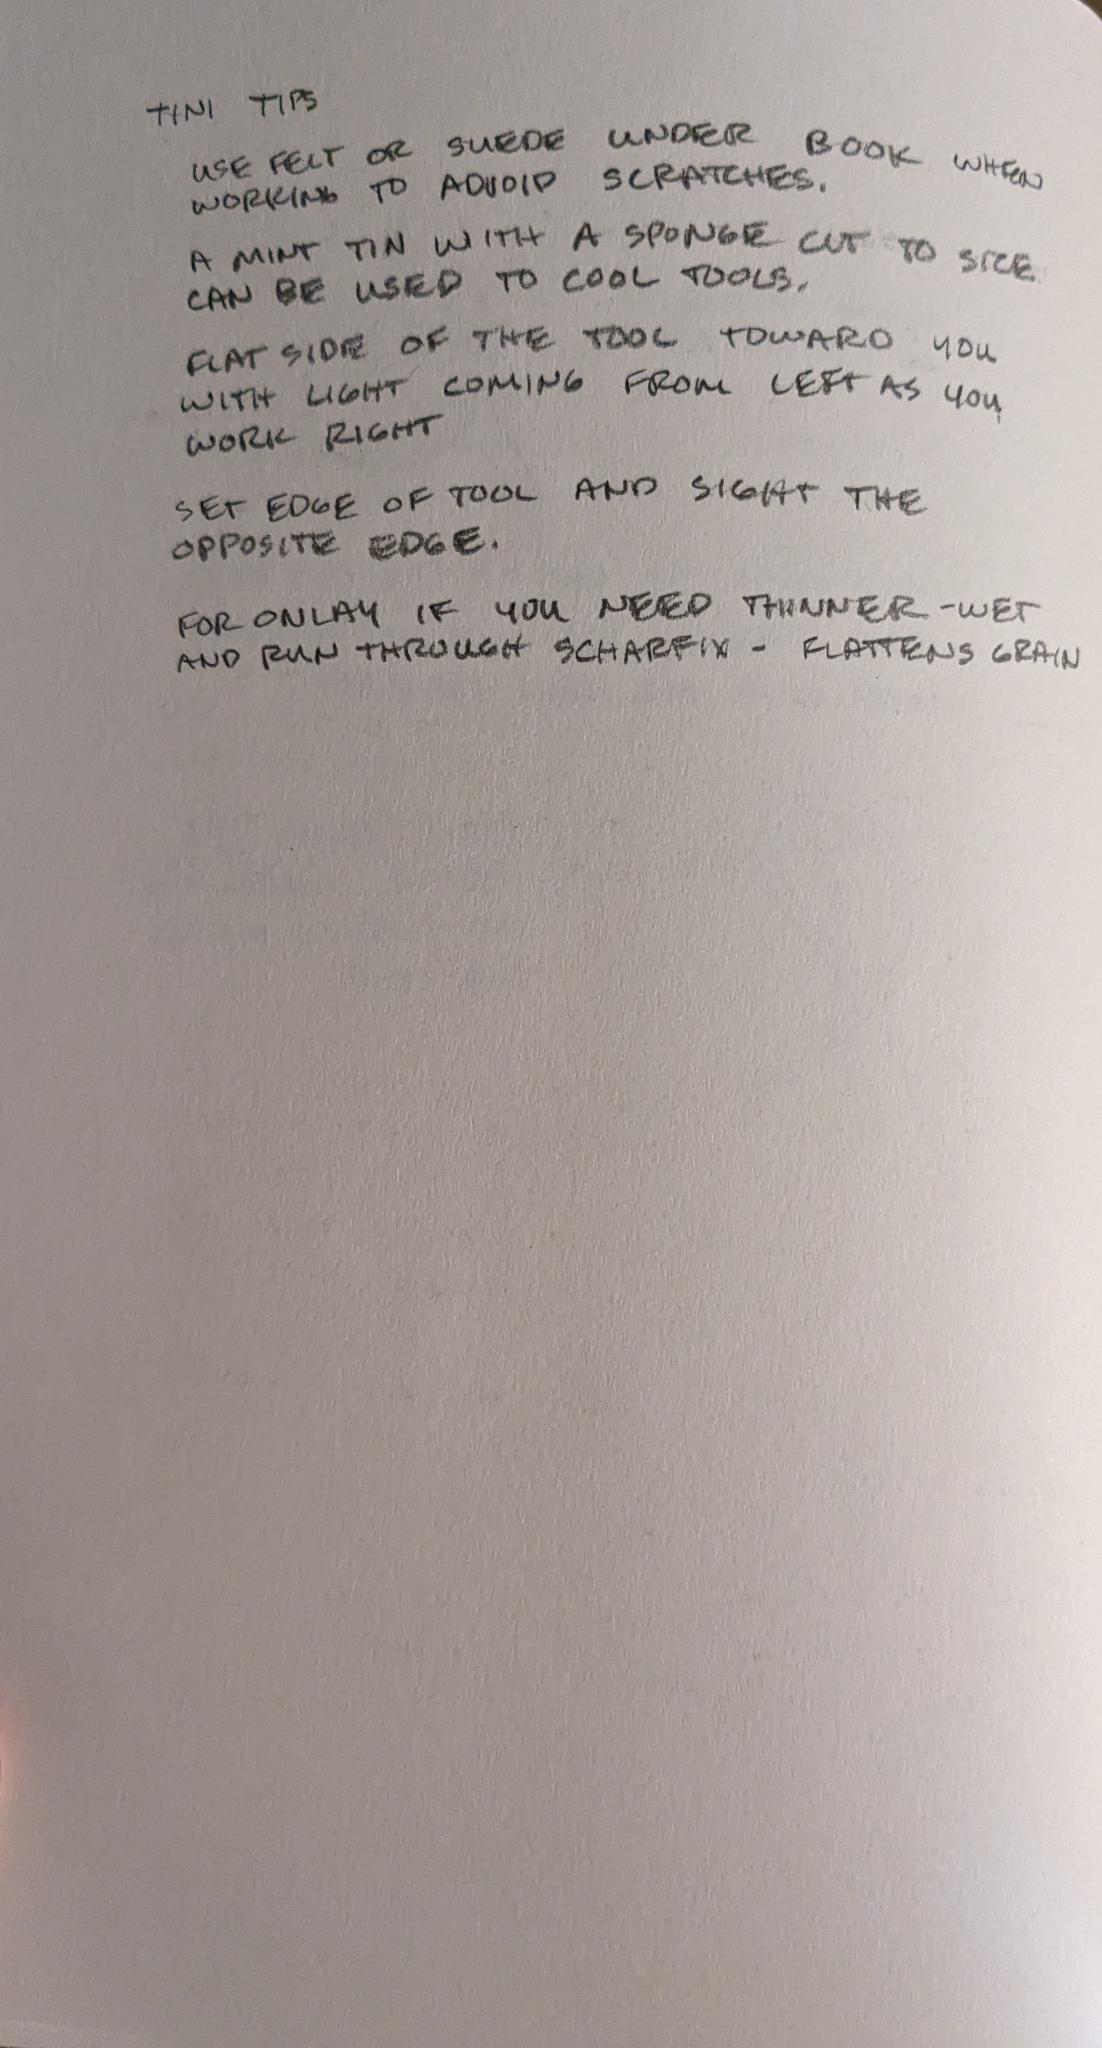 TINI TIPS
USE FELT OR SUEDE UNDER BOOK WHEN
WORKING TO ADVOID SCRATCHES.
A MINT TIN WITH A SPONGE CUT TO SIZE
CAN BE USED TO COOL TOOLS.
FLAT SIDE OF THE TOOL TOWARD YOU
WITH LIGHT COMING FROM LEFT AS YOU
WORK RIGHT
SET EDGE OF TOOL AND SIGHT THE
OPPOSITE EDGE.
FOR ONLAY IF YOU NEED THINNER - WET
AND RUN THROUGH SCHARFIX - FLATTENS GRAIN